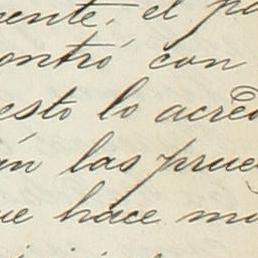 ente, el pa
ontró con
esto lo acred
án las prue
ue hace mu